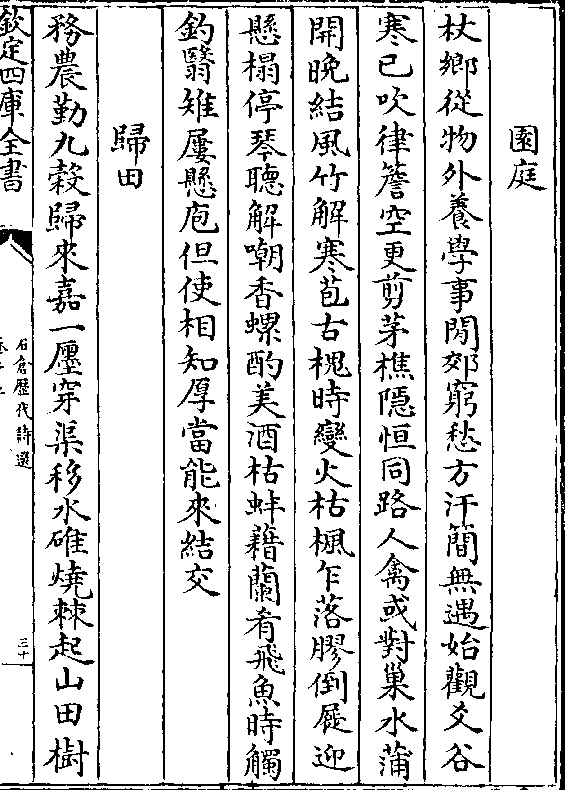 園庭
杖鄉從物外養學事閒郊窮愁方汗簡無遇始觀爻谷
寒已吹律簷空更剪茅樵隱恒同路人禽或對巢水蒲
開晚結風竹解寒苞古槐時變火枯楓乍落膠倒屣迎
懸榻停琴聽解嘲香螺酌美酒枯蚌藉蘭肴飛魚時觸
釣翳雉屢懸庖但使相知厚當能來結交
歸田
務農勤九穀歸來嘉一廛穿渠移水碓燒棘起山田樹
欽定四庫全書
石倉歷代詩選
三十